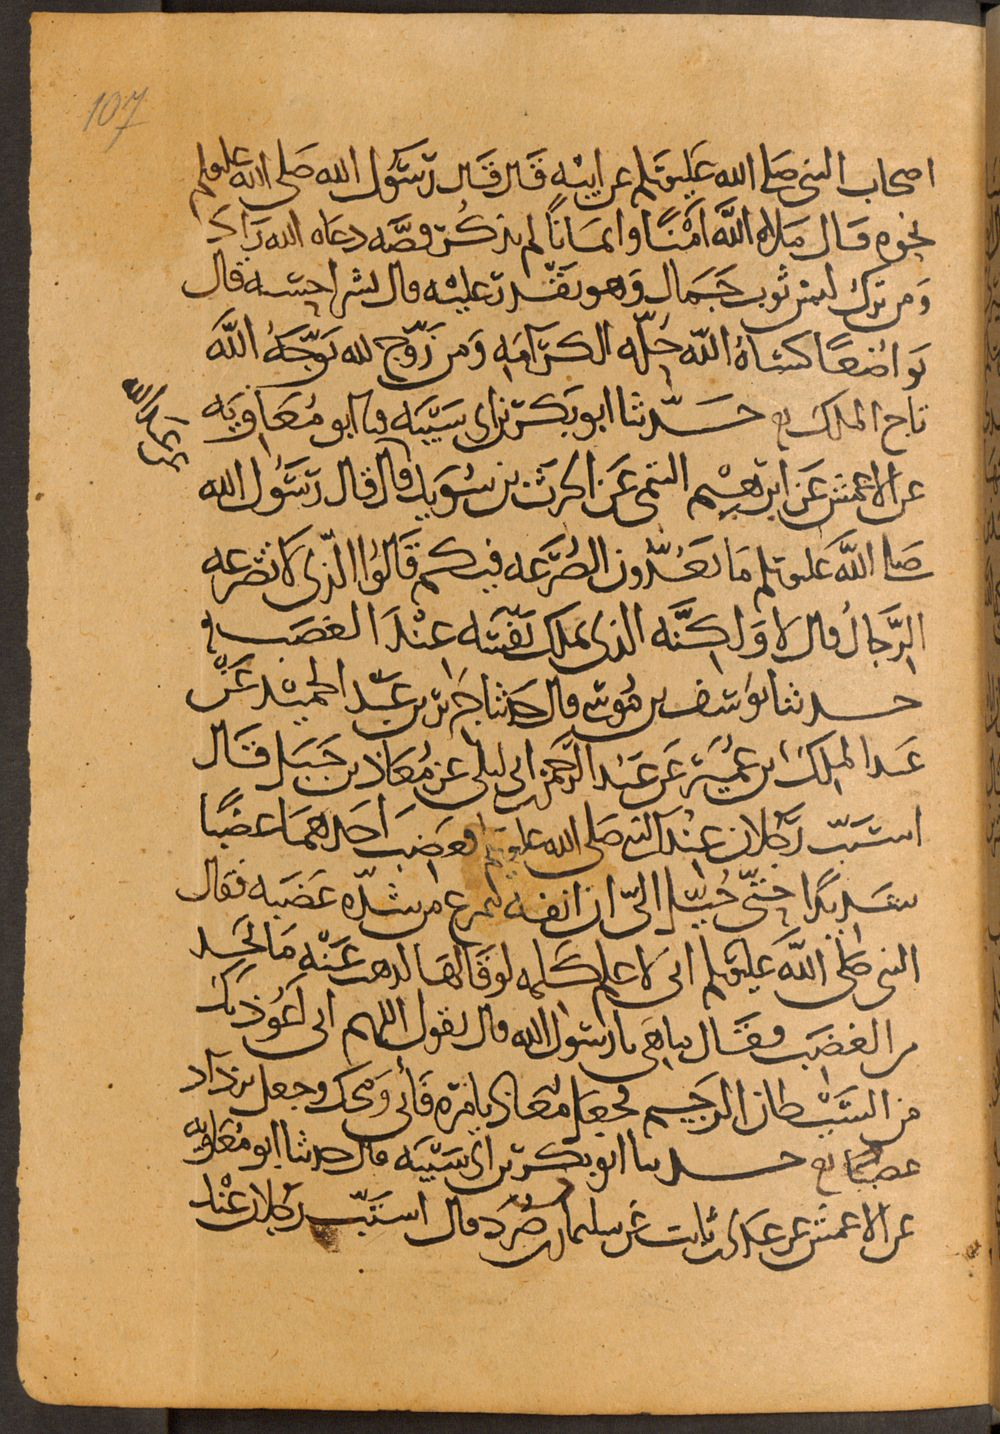 107
اصحاب النبى صلى الله عليه وسلم عن ابيه قال قال رسول الله صلى الله عليه وسلم
نحوه قال ملاه الله امنًا وايمانًا لم يذكر قصه دعاه الله زاد
ومن ترك لبس ثوب جمال وهو يقدر عليه قال بشر احسبه قال
تواضعًا كساهُ الله حلّه الكرامه ومن زوّج لله توّجهُ الله
تاج الملك حدثنا ابو بكر بن ابى شيبه نا ابو معاويه
عن الاعمش عن ابرهيم التيمى عن الحرث بن سُويد قال قال رسُول الله
عن عبد الله
صلى الله عليه وسلم ما تعُدُّون الصُّرَعه فيكم قالوُا الّذى لا تصرعه
الرّجالُ قال لا ولكنَّه الذى يملك نفسَه عنْد الغضب
حدثنا يوسف بن موسى قال حدثنا جرير بن عبد الحميد عنْ
عبد الملك بن عُمير عن عبد الرحمن بن ابى ليلى عن مُعاذ بن جبل قال
استبّ رجُلان عنْد النبى صلى الله عليه وسلم فغضبَ احدهما غضبًا
شديدًا حتّى خُيّل الىّ ان انفه يتمزع من شدّه غضبه فقال
النبى صلى اللّه عليه وسلم انى لاعلم كلمه لو قالها لذهب عنْه ما يجد
من الغضب فقال ما هى يا رسول الله قال يقول اللهم انى اعُوذ بك
من الشيْطان الرجيم فجعل مُعاذ يامره فأبى ومحك وجعل يزداد
غضبًا حدثنا ابو بكر بن ابى شيْبه قال حدثنا ابو مُعاويه
عن الاعمش عن عدى بن ثابت عن سليمان بن صُرد قال استبّ رجُلان عنْد